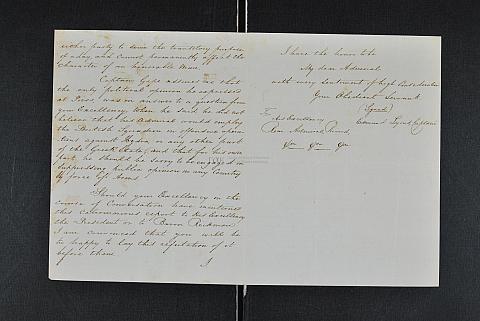 either party to serve the transitory purpose
of a day, and cannot permanently affect the
Character of an honorable Man.
Captain Gape assures us that
the only political opinion he expressed
at Poros, was in answer to a question from
your Excellency when he said he did not
believe that his Admiral would employ
the British Squadron in offensive opera
tions against Hydra or any other part
of the Greek State, and that for his own
part, he should be sorry to be engaged in
suppressing public opinion in any Country
by force of Arms.
Should your Excellency in the
course of Conversation have mentioned
this calumnious report to His Excellency
the President or to Baron Ruckman
I am convinced that you will be
be happy to lay this refutation of it
before them.
I
I have the honor to be
My dear Admiral
with every Sentiment of high Consideration
Your Obedient Servant
(Signed)
Edmund Lyons Captain
To
His Excellency
Rear Admiral Ricord